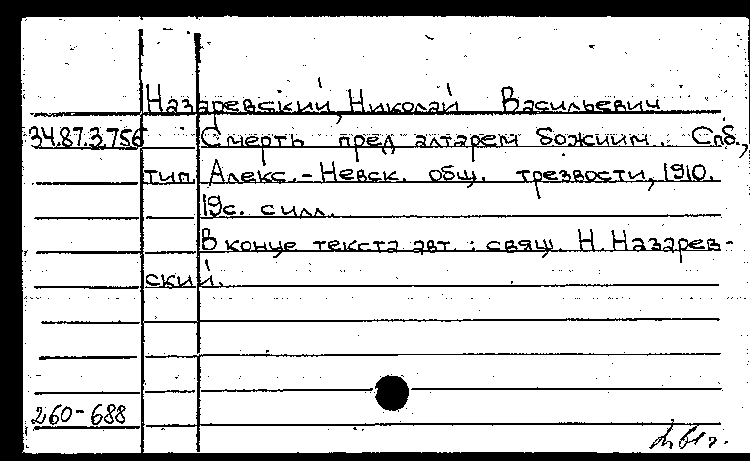 Назаревский, Николай Васильевич
34.87.3.756 Смерть пред алтарем божиим. Спб.,
тип. Алекс.-Невск. общ. трезвости, 1910.
19с. с илл.
В конце текста авт.: свящ. Н. Назарев-
ский.
260-688